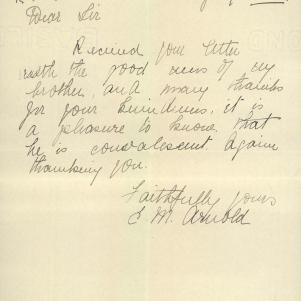 Dear Sir
Received your letter
with the good news of my
brother, and many thanks
for your kindness, it is
a pleasure to know that
he is convalescent. Again
thanking you.
Faithfully yours
E M. Arnold